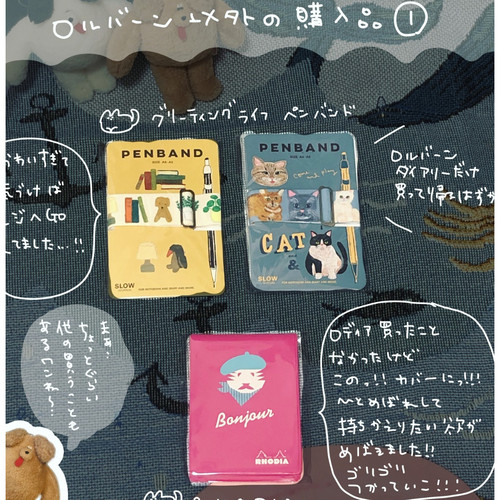 ロルバーン以外の購入品①
グリーティングライフ ペンバンド
PENBAND
PENBAND
かわいすぎて
気づけば
レジへGO
してました…!!
ロルバーン
ダイアリーだけ
買って帰るはずが
CAT
and
&
SLOW
SLOW
まぁ、
ちょっとぐらい
他の買うことも
あるワンね〜
Bonjour
RHODIA
ロディア買ったこと
なかったけど
このっ!!カバーにっ!!!
一とめぼれして
持ちかえりたい欲が
めばえました!!
ゴリゴリ
つかっていこ!!!